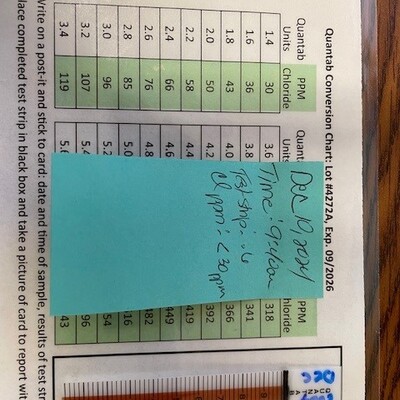 Quantab Conversion Chart: Lot #4272A, Exp. 09/2026
Quantab Units PPM Chloride Quanta Units PPM Chloride
1.4 30 3.6 318
1.6 36 3.8 341
1.8 43 4.0 366
2.0 50 4.2 392
2.2 58 4.4 419
2.4 66 4.6 449
2.6 76 4.8 482
2.8 85 5.0 516
3.0 96 5.2 54
3.2 107 5.4 96
3.4 119 5.6 43
Dec 19, 2024
Time: 9:42am
Test strip: .6
Cl ppm: <30 ppm
Write on a post-it and stick to card: date and time of sample, results of test str
lace completed test strip in black box and take a picture of card to report wit
QUANTAB